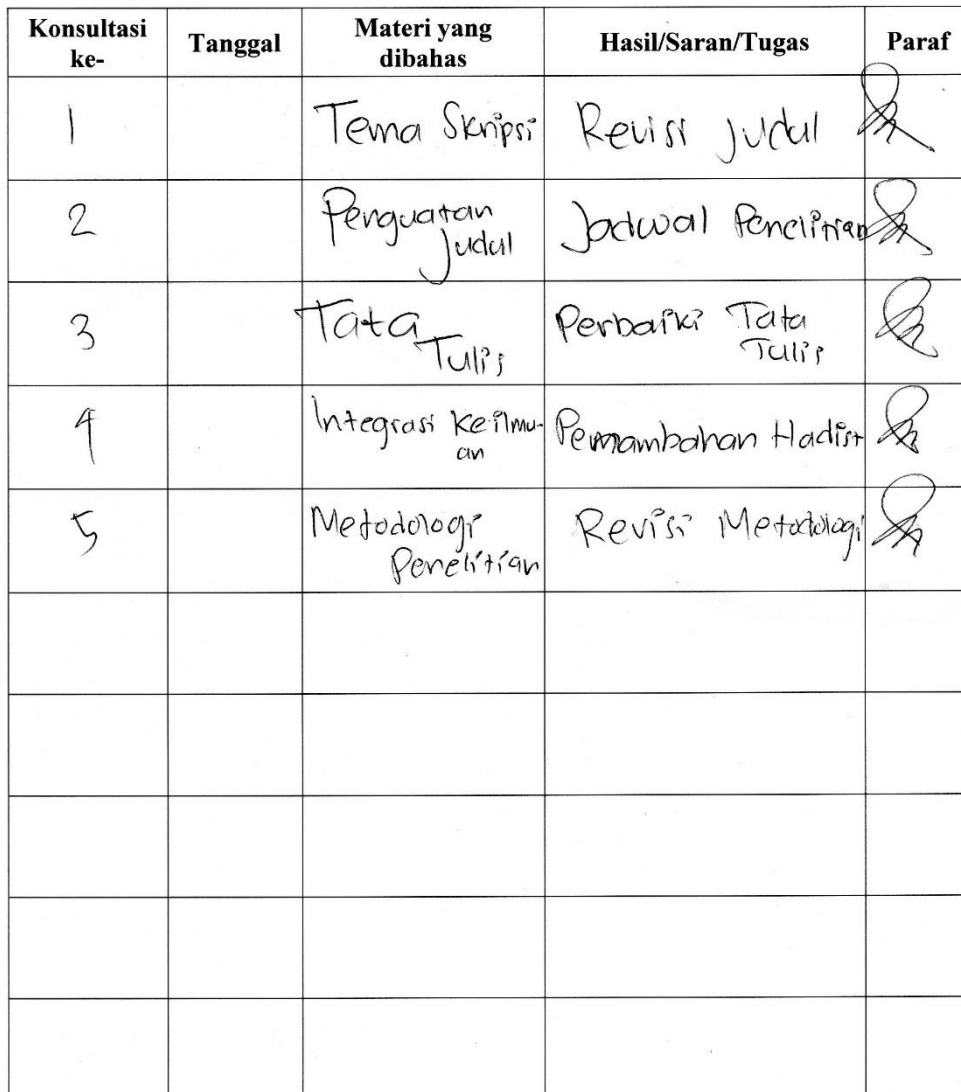 Konsultasi ke- Tanggal Materi yang dibahas Hasil/Saran/Tugas Paraf
1 Tema Skripsi Revisi Judul
2 Penguatan Judul Jadwal Penelitian
3 Tata Tulis Perbaiki Tata Tulis
4 Integrasi Keilmu-an Penambahan Hadist
5 Metodologi Penelitian Revisi Metodologi